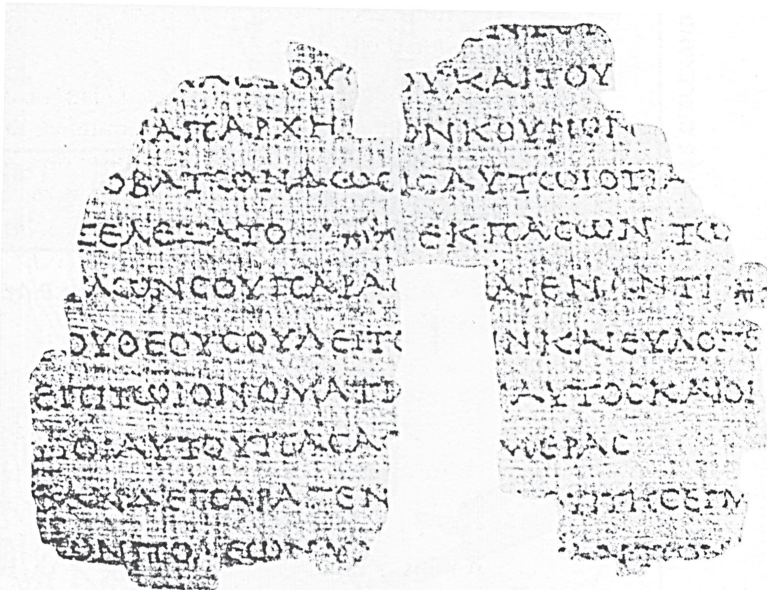 ΟΥ ΟΥΚΑΙΤΟΥ
ΑΠΑΡΧΗ ΩΝΚΟΥΡΩΝ
ΟΒΑΤΩΝΔΩϹΙϹΑΥΤΩΙΟΤΙΑ
ΞΕΛΕΞΑΤΟ יהוה ΕΚΠΑϹΩΝ ΤΩ
ΛΩΝϹΟΥΠΑΡΑϹ ΑΙΕΝΑΝΤΙ
ΟΥΘΕΟΥϹΟΥΛΕΙΤΟ ΙΝΚΑΙΕΥΛΟΓΕ
ΕΠΙΤΩΙΟΝΟΜΑΤΙ ΑΥΤΟϹΚΑΙΟΙ
ΙΟΙΑΥΤΟΥΠΑϹΑϹ ΜΕΡΑϹ
ΕΑΝΔΕΠΑΡΑΓΕΝ
ΩΝΠΟΛΕΩΝΥ